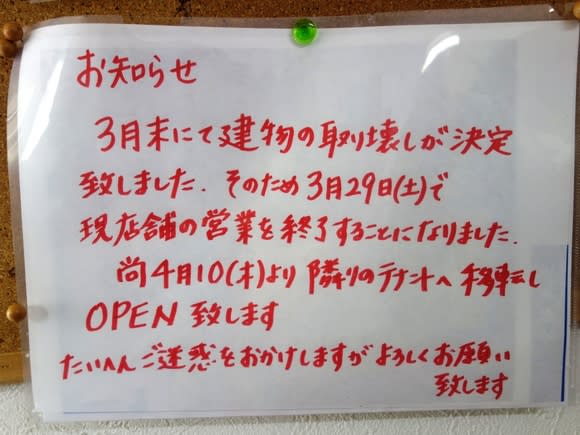 お知らせ
3月末にて建物の取り壊しが決定
致しました. そのため3月29日(土)で
現店舗の営業を終了することになりました.
尚4月10(木)より 隣りのテナントへ移転し
OPEN 致します
たいへんご迷惑をおかけしますがよろしくお願い
致します